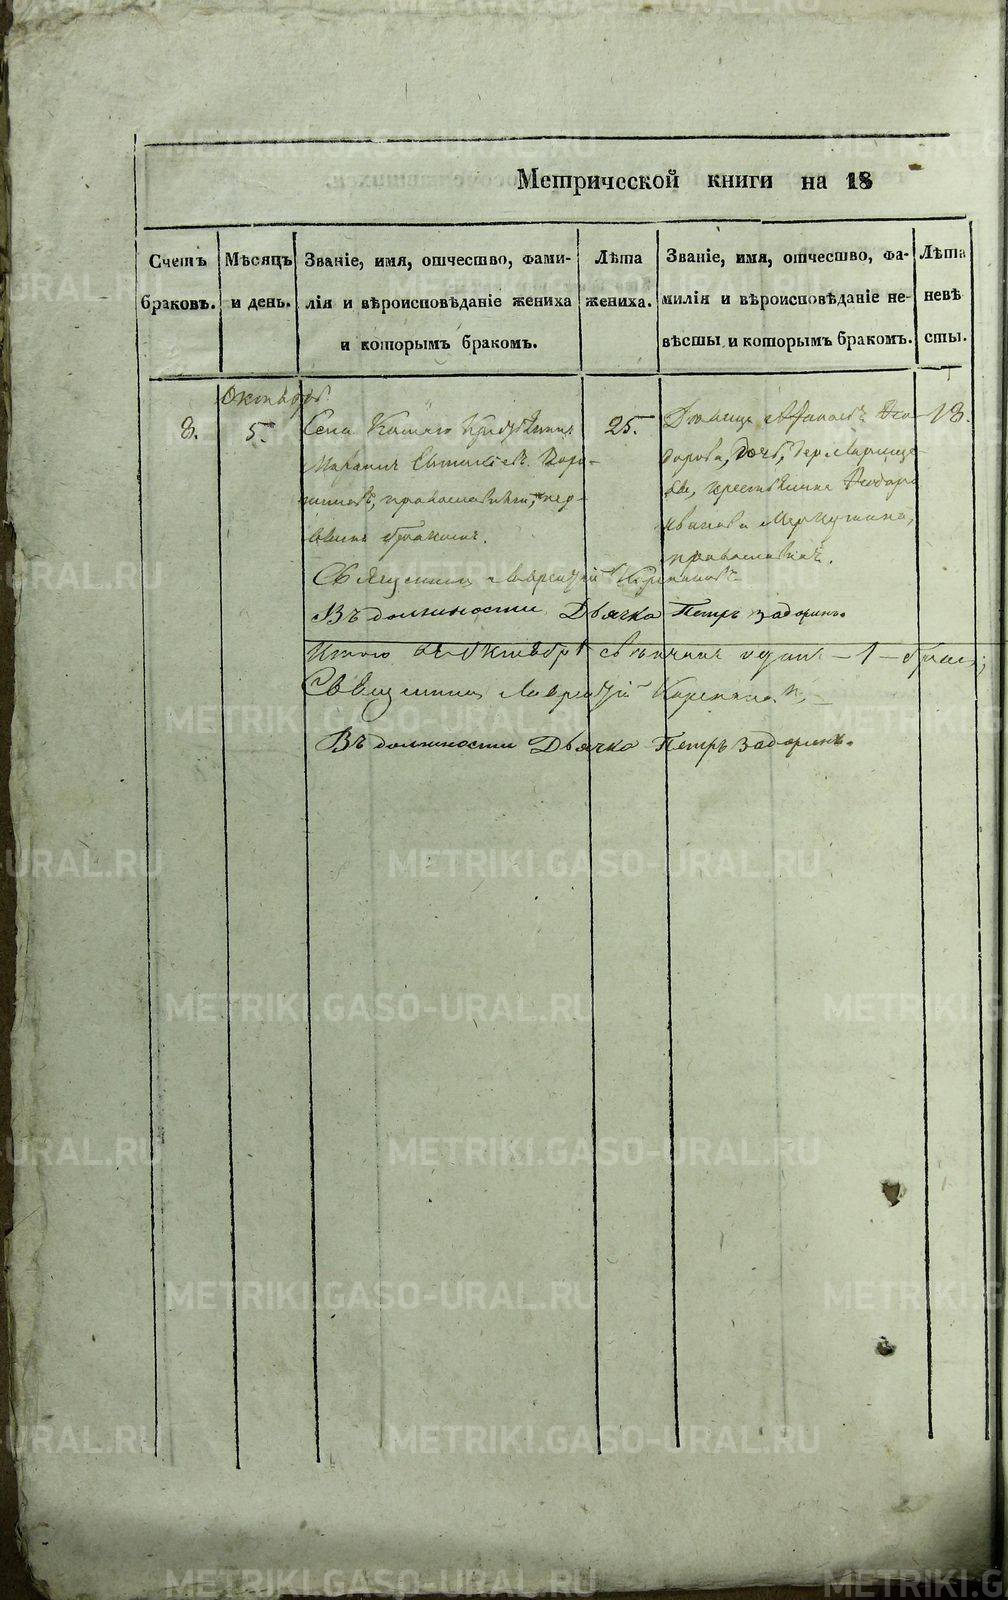 Метрической книги на 18
Счетъ браковъ.
Мѣсяцъ и день.
Званіе, имя, отчество, фами-
лія и вѣроисповѣданіе жениха
и которымъ бракомъ.
Лѣта
жениха.
Званіе, имя, отчество, фа-
милія и вѣроисповѣданіе не-
вѣсты и которымъ бракомъ.
Лѣта
невѣ
сты.
Октябрь
8.
5.
Села
православный, пер-
вымъ бракомъ.
25.
Дѣвица
дорова, дочь, дер.
крестьянина Ѳеодора
Иванова
православная.
18.
Священникъ Лаврентій
Въ должности Дьячка Петръ Задоринъ.
Итого въ Октябрѣ свѣнчанъ одинъ – 1 – бракъ;
Священникъ Лаврентій
Въ должности Дьячка Петръ Задоринъ.
METRIKI.GASO-URAL.RU